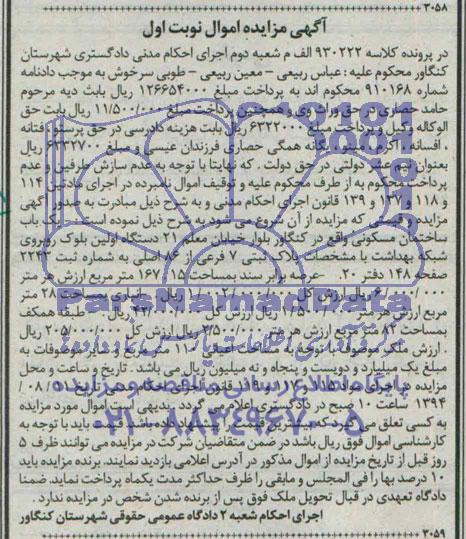 ۳۰۵۸
آگهی مزایده اموال نوبت اول
در پرونده کلاسه ۹۳۰۲۲۲ الف م شعبه دوم اجرای احکام مدنی دادگستری شهرستان
کنگاور محکوم علیه : عباس ربیعی - معین ربیعی - طوبی سرخوش به موجب دادنامه
شماره ۹۱۰۱۶۸ محکوم اند به پرداخت مبلغ ۱۲۶۶۵۴۰۰۰ ریال بابت دیه مرحوم
حامد حصاری در حق وراث وی و همچنین پرداخت مبلغ ۱۱/۵۰۰/۰۰۰ ریال بابت حق
الوکاله وکیل و پرداخت مبلغ ۶۳۲۲۰۰۰ ریال بابت هزینه دادرسی در حق پرستو ، فتانه
، افسانه ، اکرم ، مبین ، یگانه همگی حصاری فرزندان عیسی و مبلغ ۶۳۳۲۷۰۰ ریال
بعنوان نیم عشر دولتی در حق دولت . که نهایتا با توجه به عدم سازش طرفین و عدم
پرداخت محکوم به از طرف محکوم علیه و توقیف اموال نامبرده در اجرای مادتین ۱۱۴
و ۱۱۸ و ۱۳۷ و ۱۳۹ قانون اجرای احکام مدنی و به شرح ذیل مبادرت به صدور آگهی
مزایده و قیمتی که مزایده از آن شروع می شود به شرح ذیل نموده است . یک باب
ساختمان مسکونی واقع در کنگاور بلوار خیابان معلم ۲۱ دستگاه اولین بلوک روبروی
شبکه بهداشت با مشخصات پلاک ثبتی ۷ فرعی از ۸۶ اصلی به شماره ثبت ۲۲۴۰
صفحه ۱۴۸ دفتر ۲۰ . - عرصه برابر سند بمساحت ۱۶۷/۱۵ متر مربع ارزش هر متر
۶/۰۰۰/۰۰۰ ریال ارزش کل ریال . انباری بمساحت ۲۸ متر
مربع ارزش هر متر ریال ارزش کل ریال . - طبقه همکف
بمساحت ۸۲ متر مربع ارزش هر متر ۲/۵۰۰/۰۰۰ ریال ارزش کل ۲۰۵/۰۰۰/۰۰۰ ریال
. ارزش ملک موصوف با توجه به مساحت اعیانی ۱۱۰ متر مربع و سایر موصوفات به
مبلغ یک میلیارد و دویست و پنجاه و نه میلیون ریال می باشد . تاریخ و ساعت و محل
مزایده در اجرای مواد ۱۱۵ و ۱۱۷ و ۱۱۹ قانون اجرای احکام مدنی مورخ /۰۸/
۱۳۹۴ ساعت ۱۰ صبح در دادگستری اعلام می گردد . بدیهی است اموال مورد مزایده
به کسی تعلق می گیرد که بالاترین قیمت را پیشنهاد داده باشد . قیمت پایه با توجه به
کارشناسی اموال فوق ریال باشد در ضمن متقاضیان شرکت در مزایده می توانند ظرف ۵
روز قبل از تاریخ مزایده از اموال مذکور در آدرس اعلامی بازدید نمایند. برنده مزایده باید
۱۰ درصد بها را فی المجلس و مابقی را ظرف حداکثر مدت یکماه پرداخت نماید. ضمنا
دادگاه تعهدی در قبال تحویل ملک فوق پس از برنده شدن شخص در مزایده ندارد .
اجرای احکام شعبه ۲ دادگاه عمومی حقوقی شهرستان کنگاور
۳۰۵۹
ParsNamadData
پایگاه اطلاع رسانی مناقصه و مزایده
۰۲۱-۸۸۳۴۹۶۷۰-۵